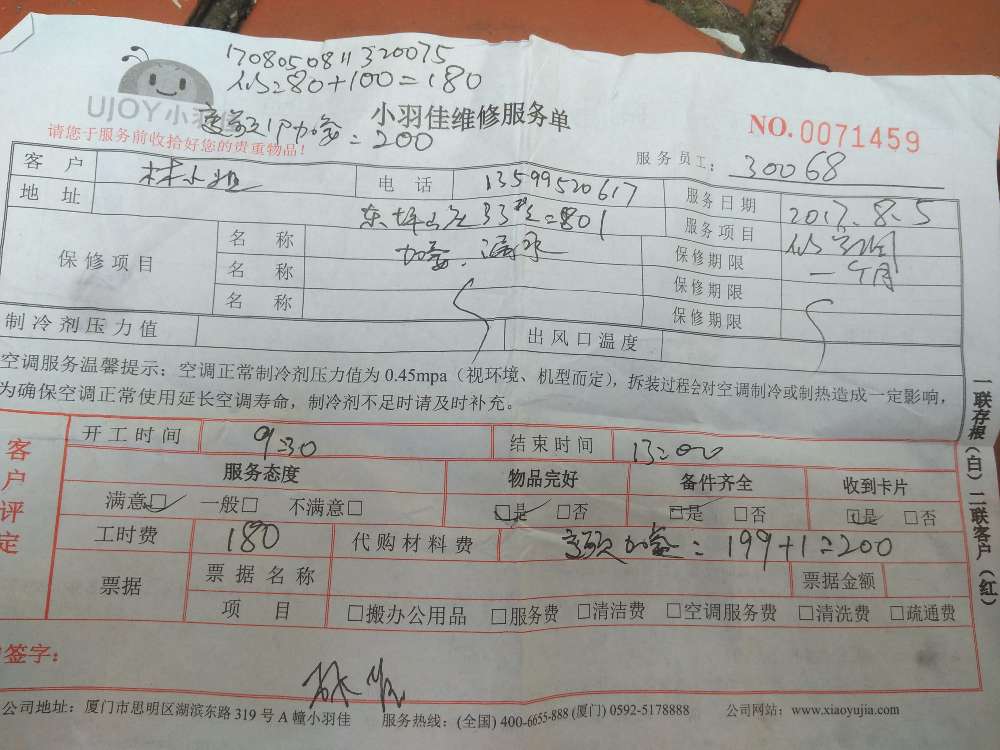 170805081320075
80+100=180
UJOY小羽佳
=200
小羽佳维修服务单
请您于服务前收拾好您的贵重物品!
NO.0071459
服务员工: 30068
客户 林小姐 电话 13599520617 服务日期 2017.8.5
地址 801 服务项目
保修项目 名称 加氟.漏水 保修期限 一个月
名称 保修期限
名称 保修期限
制冷剂压力值 出风口温度
空调服务温馨提示:空调正常制冷剂压力值为0.45mpa(视环境、机型而定),拆装过程会对空调制冷或制热造成一定影响,
为确保空调正常使用延长空调寿命,制冷剂不足时请及时补充。
一联存根(白)二联客户(红)
客户评定
开工时间 9:30 结束时间 13:00
服务态度 物品完好 备件齐全 收到卡片
满意□ 一般□ 不满意□ □是 □否 □是 □否 □是 □否
工时费 180 代购材料费 加氟:199+1=200
票据 票据名称 票据金额
项目 □搬办公用品 □服务费 □清洁费 □空调服务费 □清洗费 □疏通费
签字:
林
公司地址:厦门市思明区湖滨东路319号A幢小羽佳 服务热线:(全国)400-6655-888(厦门)0592-5178888 公司网站:www.xiaoyujia.com